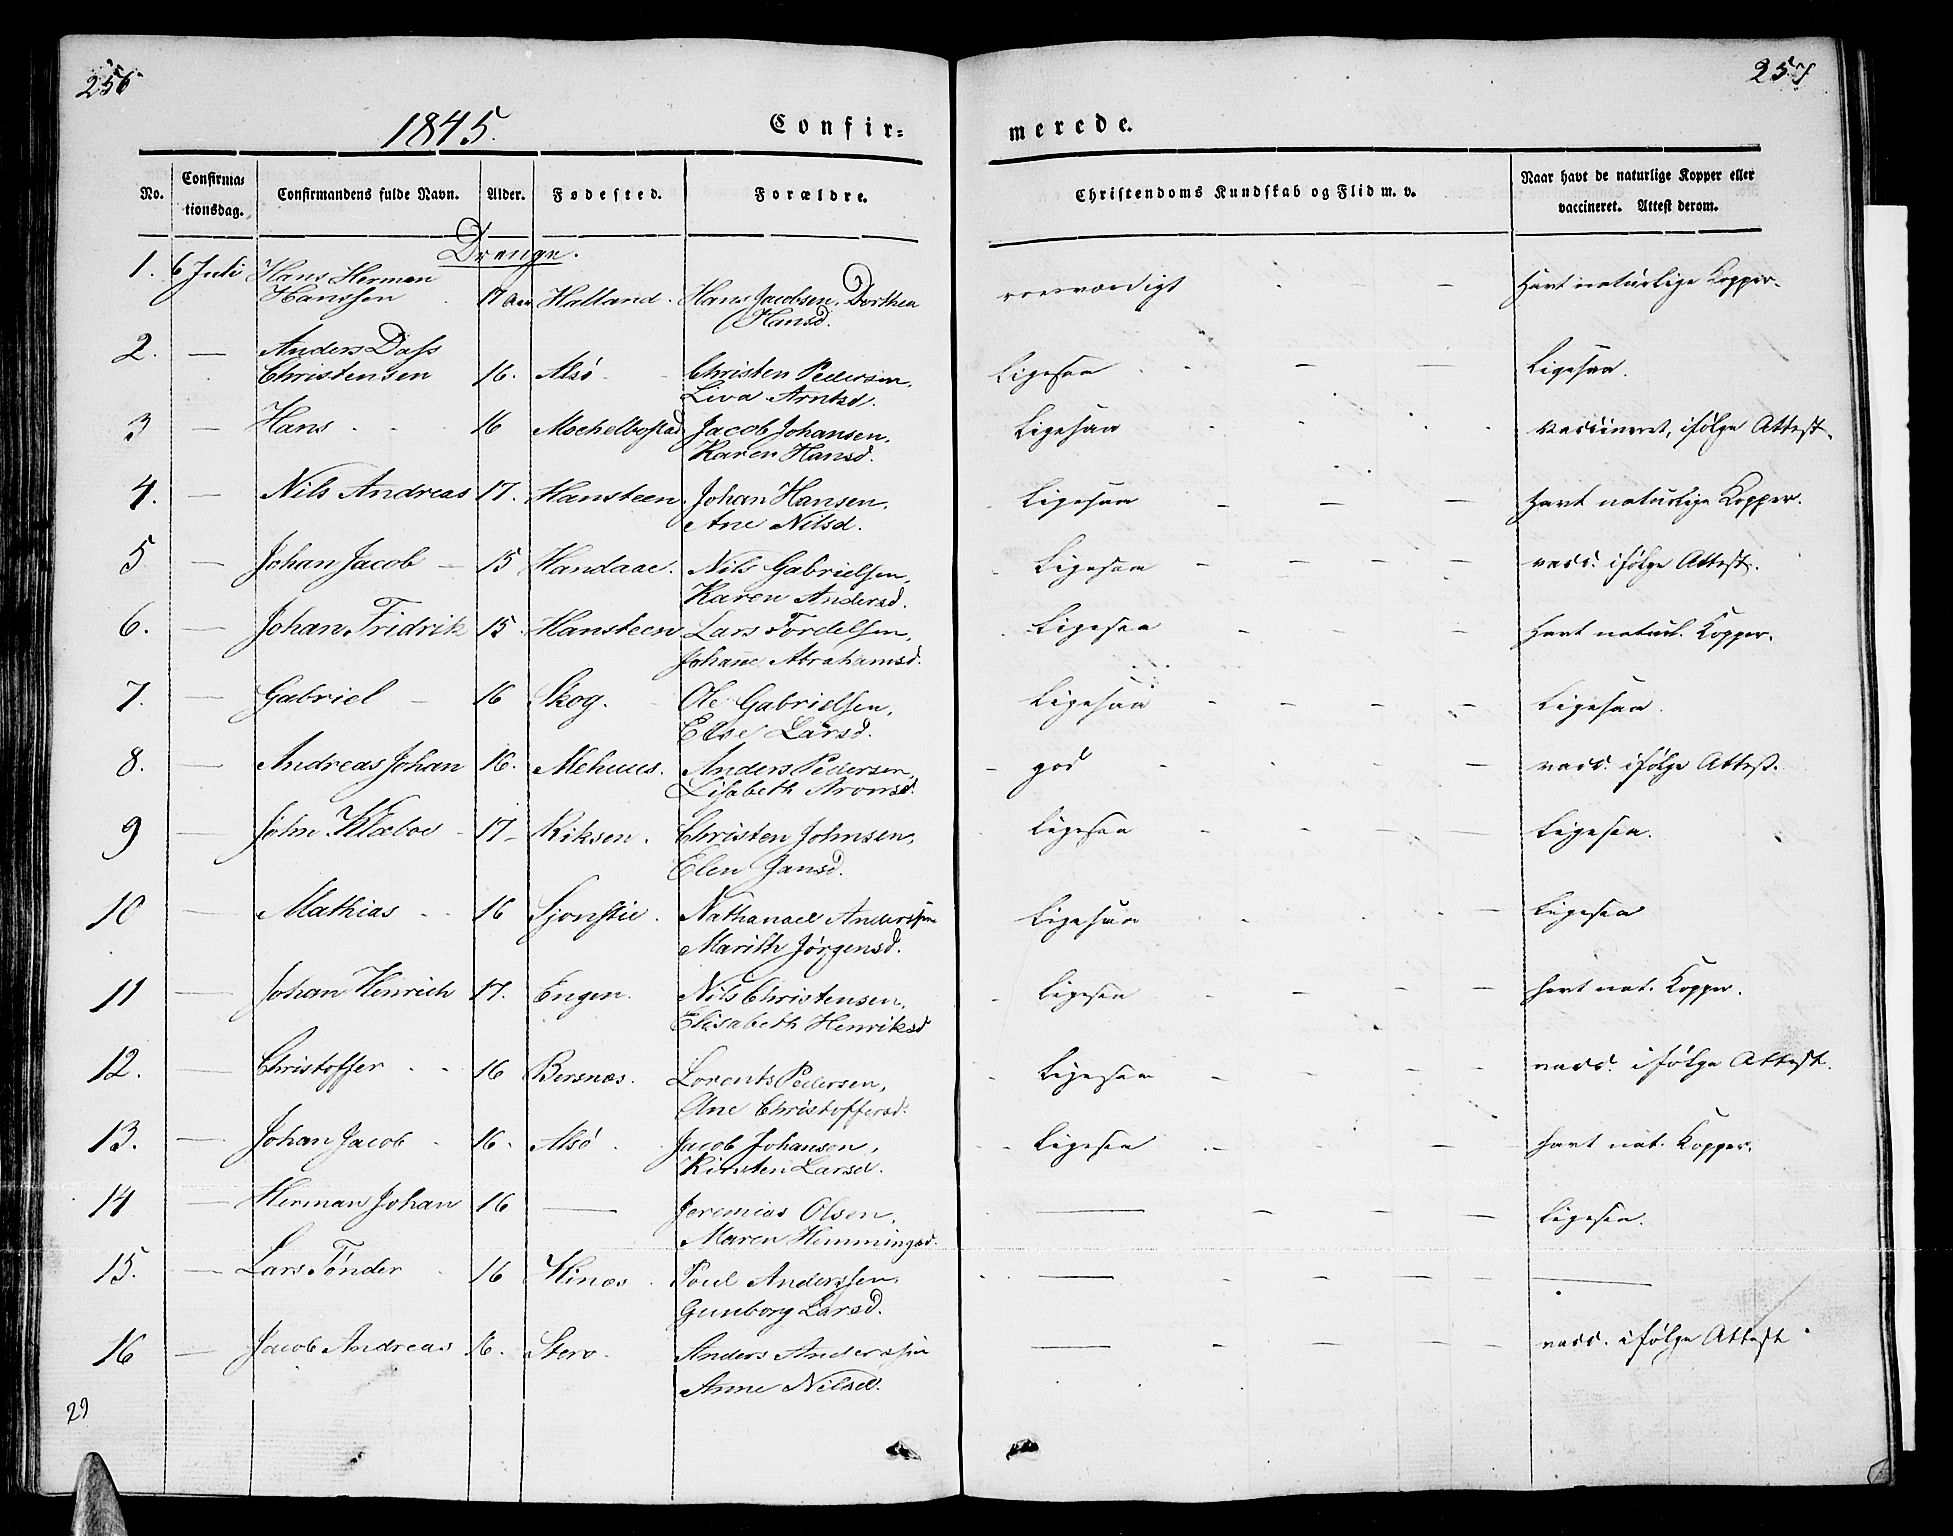 256
257
1845.
Confir=
merede.
No. Confirma=tionsdag. Confirmandens fulde Navn. Alder. Fødested. Forældre. Christendoms Kundskab og Flid m. v. Naar havt de naturlige Kopper eller vaccineret. Attest derom.
Drenge.
1. 6 Juli Hans Herman
Hanssen 17 Aar Halland. Hans Jacobsen, Dorthea roesværdigt - Havt naturlige Kopper.
Hansd.
2. — Anders Dass
Christensen 16. Alsö Christen Pedersen, Ligesaa - - Ligesaa.
Liva Arntsd.
3 — Hans 16 Mechelbostad Jacob Johansen, Ligesaa vaccineret, ifølge Attest.
Karen Hansd.
4. — Nils Andreas 17. Hansteen. Johan Hansen, Ligesaa - - - Havt naturlige Kopper.
Ane Nilsd.
5 — Johan Jacob - 15 Handaae. Nils Gabrielsen, Ligesaa - - - - vacc. ifølge Attest.
Karen Andersd.
6. — Johan Fridrik 15. Hansteen Lars Tordelsen, Ligesaa - - - Havt naturl. Kopper.
Johane Abrahamsd.
7. — Gabriel - 16 Skog. Ole Gabrielsen, Ligesaa - - - - Ligesaa.
Else Larsd.
8. — Andreas Johan 16. Mehuus. Anders Pedersen, god - - vacc. ifølge Attest.
Lisabeth Aronsd.
9 — John Klæboe - 17- Riksen. Christen Johnsen, Ligesaa - - - - Ligesaa.
Elen Jansd.
10 — Mathias 16 Sjonstie. Nathanael Anderssen Ligesaa - Ligesaa
Marith Jørgensd.
11 — Johan Henrich 17. Engen. Nils Christensen, Ligesaa - - - - havt nat. Kopper.
Elisabeth Henriksd
12. — Christoffer 16 Bersnæs. Lorents Pedersen, Ligesaa - - - - vacc. ifølge Attest.
Ane Christoffersd.
13. — Johan Jacob 16. Alsö. Jacob Johanson, Ligesaa - - - havt nat. Kopper.
Kirsten Larsd.
14 — Herman Johan 16 — Jeremias Olsen, — - - - Ligesaa.
Maren Hemmingsd.
15. — Lars Tønder 16 Kinæs Poul Anderssen, — - - - —
Gunborg Larsd.
16 — Jacob Andreas 16. Stero. Anders Anderssen — - - - - vacc. ifølge Attest
Anne Nilsd.
29